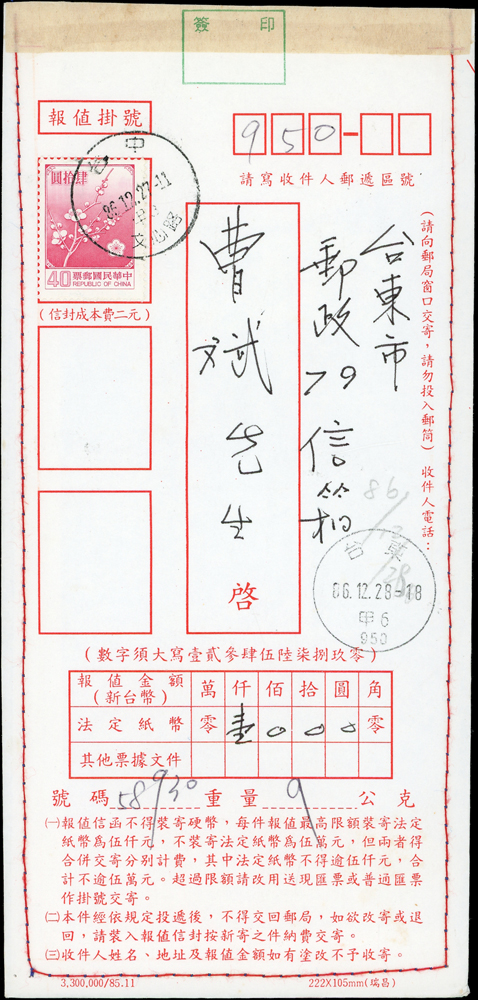 簽印
報值掛號
950-
請寫收件人郵遞區號
肆拾圓
40 中華民國郵票
REPUBLIC OF CHINA
台中
86.12.27-11
(信封成本費二元)
(請向郵局窗口交寄,請勿投入郵筒) 收件人電話:
台東市
郵政79信箱
曹斌先生
啓
86/12/28
台東
86.12.28-18
甲6
950
(數字須大寫壹貳參肆伍陸柒捌玖零)
報值金額(新台幣) 萬 仟 佰 拾 圓 角
法定紙幣 零 壹 0 0 0 零
其他票據文件
號碼 58930 重量 9 公克
㈠報值信函不得裝寄硬幣,每件報值最高限額裝寄法定
紙幣爲伍仟元,不裝寄法定紙幣爲伍萬元,但兩者得
合併交寄分別計費,其中法定紙幣不得逾伍仟元,合
計不逾伍萬元。超過限額請改用送現匯票或普通匯票
作掛號交寄。
㈡本件經依規定投遞後,不得交回郵局,如欲改寄或退
回,請裝入報值信封按新寄之件納費交寄。
㈢收件人姓名、地址及報值金額如有塗改不予收寄。
3,300,000/85.11
222X105mm(瑞昌)